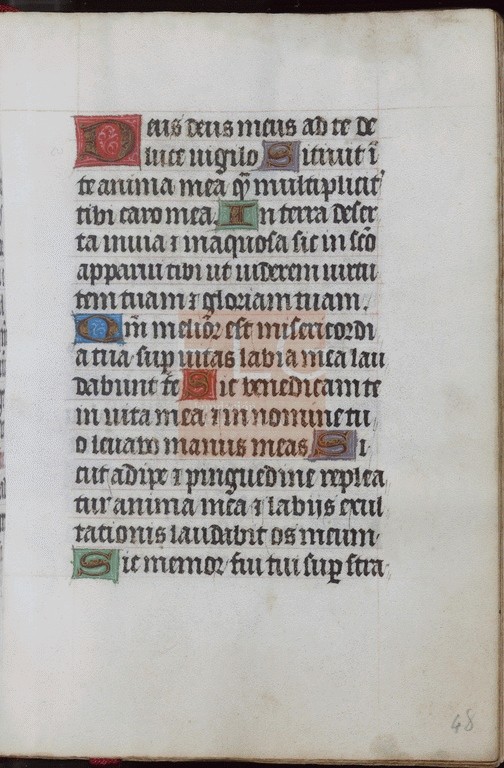 Deus deus meus ad te de
luce uigilo Sitiuit ī
te anima mea qm̄ multiplicit᷑
tibi caro mea. In terra deser
ta inuia ⁊ inaquosa sic in scō
apparui tibi ut uiderem uirtu
tem tuam ⁊ gloriam tuam.
Qm̄ melior est misericordi
a tua sup uitas labia mea lau
dabunt te Sic benedicam te
in uita mea ⁊ in nomine tu
o leuabo manus meas Si
cut adipe ⁊ pinguedine replea
tur anima mea ⁊ labijs exul
tationis laudabit os meum
Sic memor fui tui sup stra
48